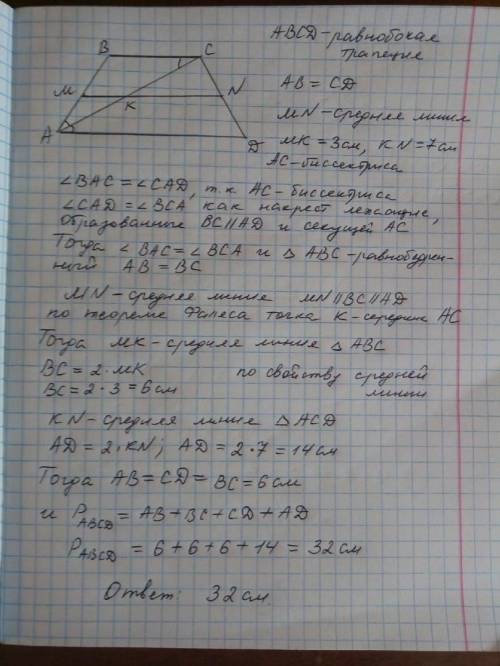 ABCD - равнобокая
трапеция
B
C
AB = CD
M
N
MN - средняя линия
K
MK = 3 см, KN = 7 см
A
D
AC - биссектриса
∠BAC = ∠CAD, т.к AC - биссектриса
∠CAD = ∠BCA как накрест лежащие,
образованные BC∥AD и секущей AC
Тогда ∠BAC = ∠BCA и △ ABC - равнобедрен-
ный AB = BC
MN - средняя линия MN∥BC∥AD
по теореме Фалеса точка K - середина AC
Тогда MK - средняя линия △ ABC
BC = 2 · MK по свойству средней
BC = 2 · 3 = 6 см линии
KN - средняя линия △ ACD
AD = 2 · KN; AD = 2 · 7 = 14 см
Тогда AB = CD = BC = 6 см
и P ABCD = AB + BC + CD + AD
P ABCD = 6 + 6 + 6 + 14 = 32 см
Ответ: 32 см.